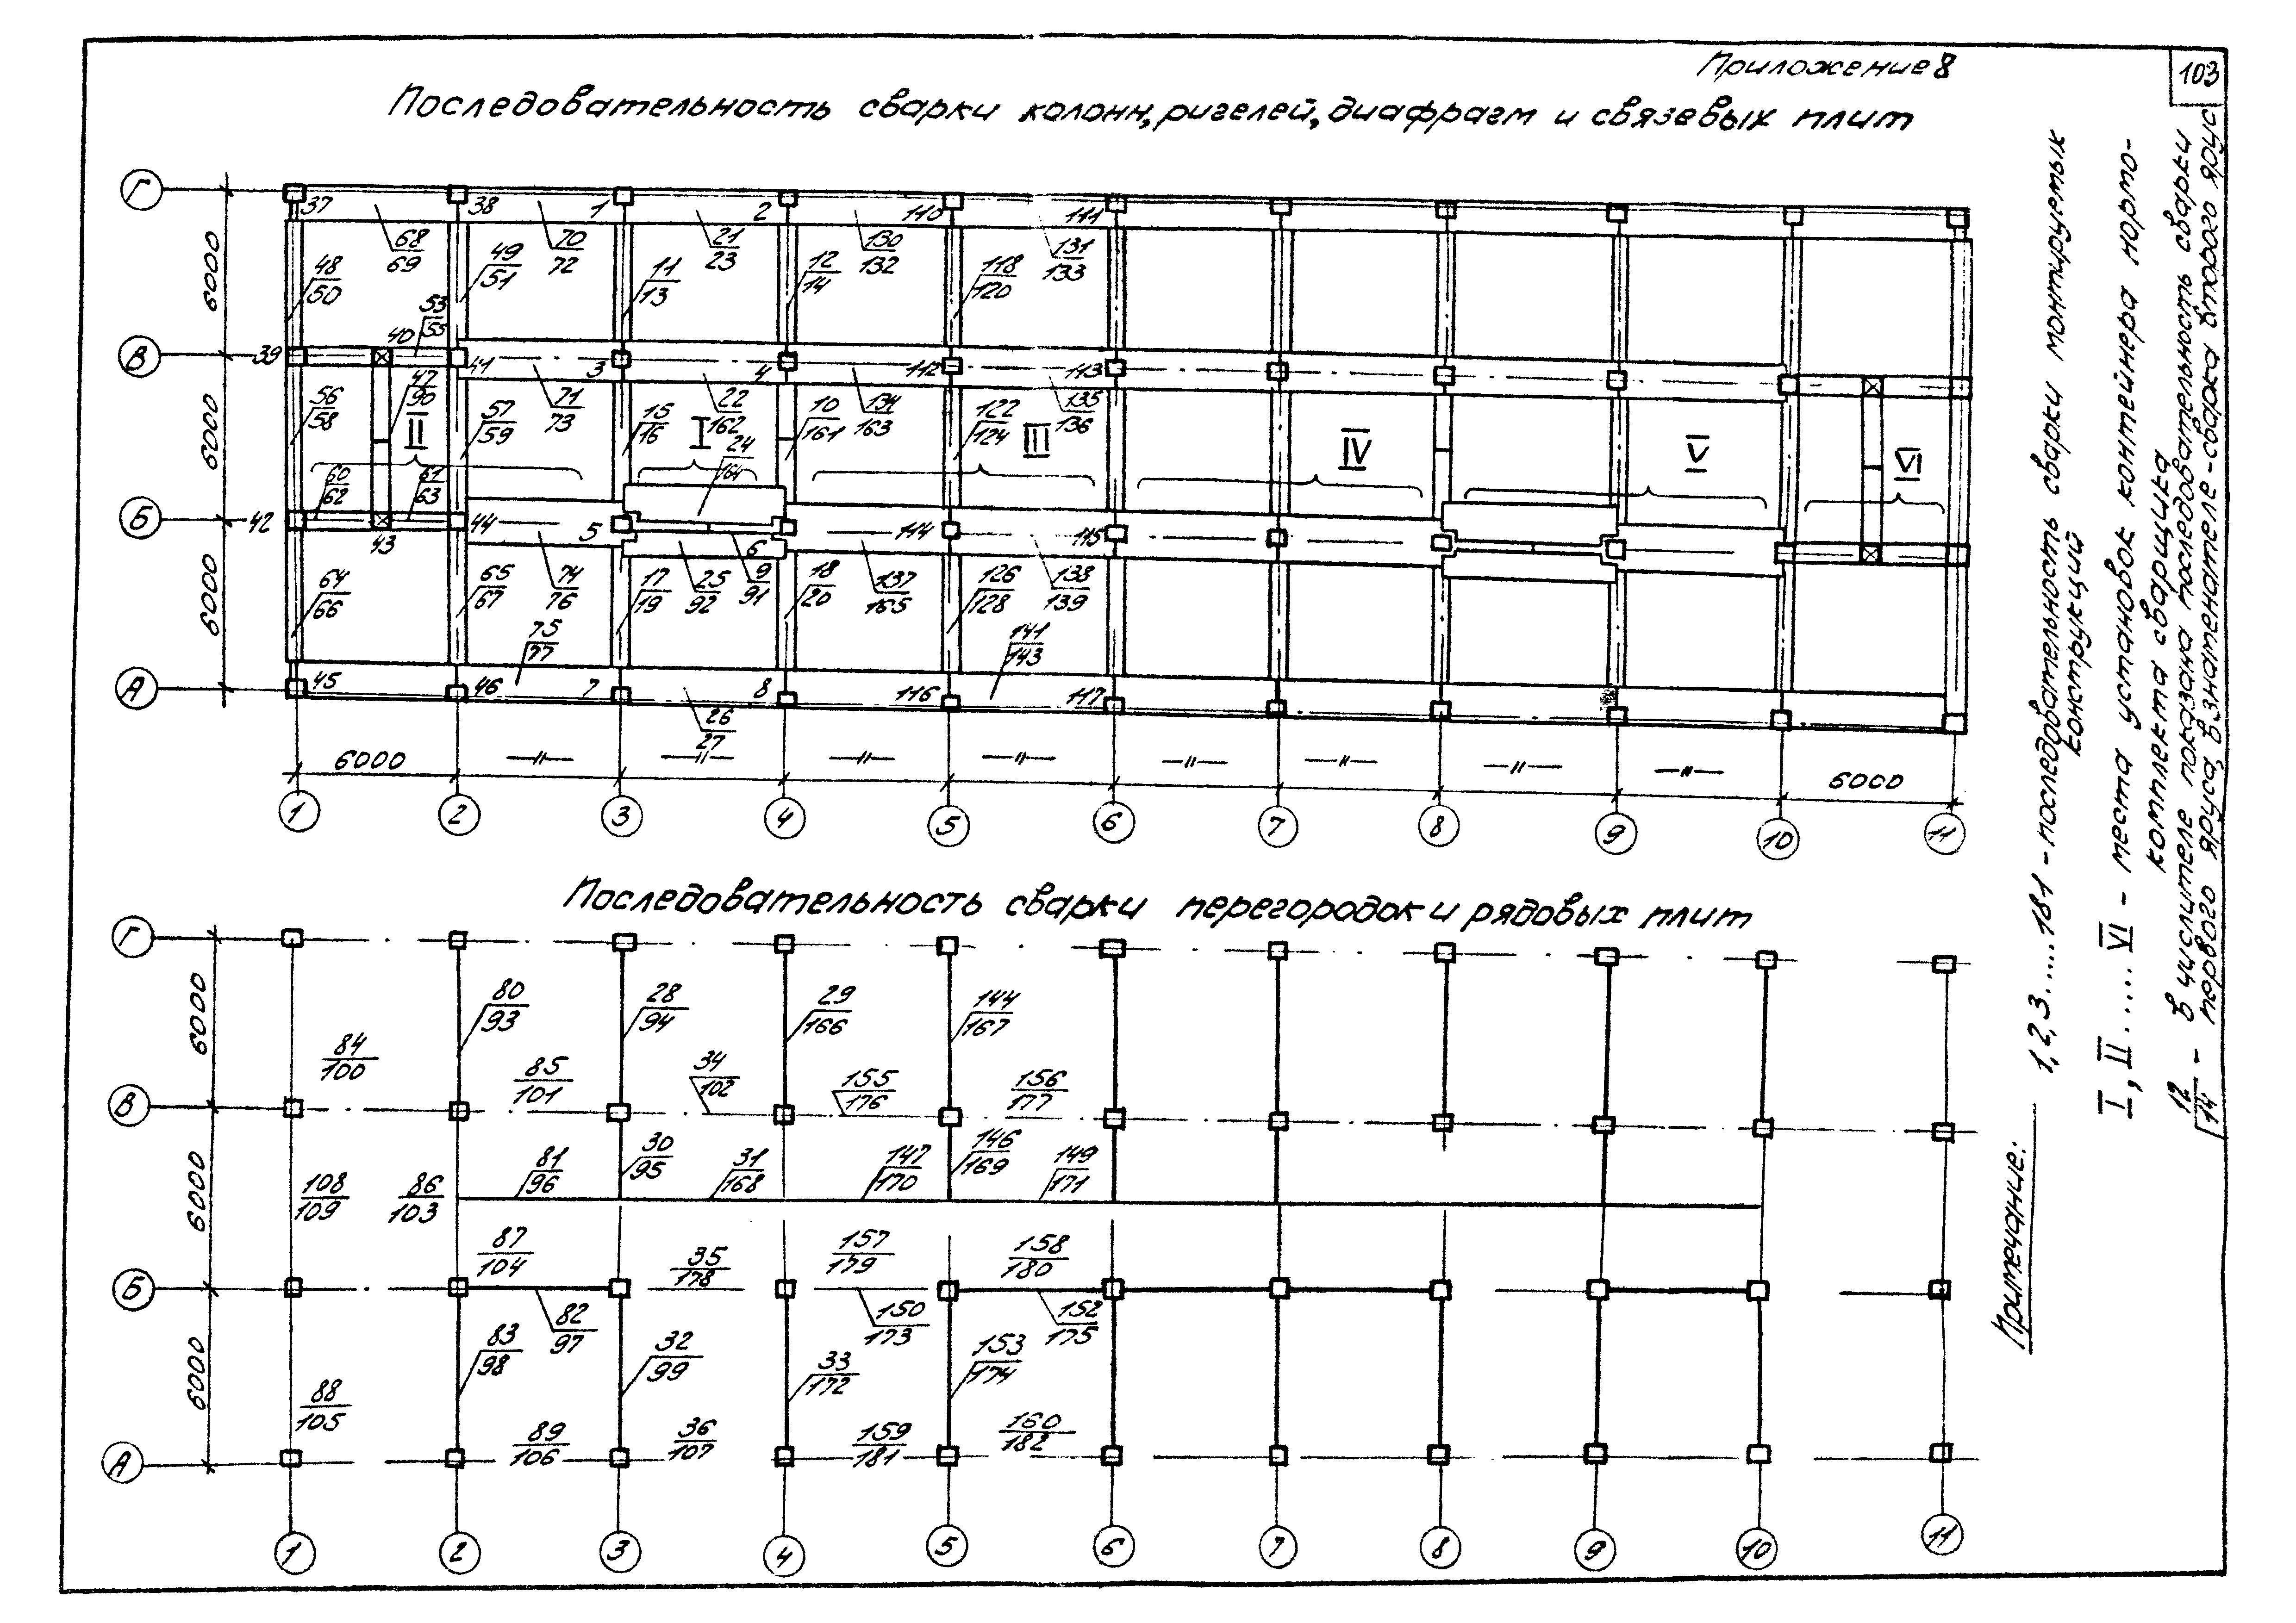 Приложение 8
103
Последовательность сварки колонн, ригелей, диафрагм и связевых плит
Г
37
38
1
2
110
111
68
69
70
72
21
23
130
132
131
133
48
50
49
51
11
13
12
14
118
120
6000
53
55
40
В
39
41
3
4
112
113
47
90
71
73
22
162
134
163
135
136
56
58
57
59
15
16
10
161
122
124
6000
II
I
III
IV
V
VI
24
164
60
62
61
63
Б
42
43
44
5
6
114
115
74
76
25
92
9
91
137
165
138
139
64
66
65
67
17
19
18
20
126
128
6000
75
77
141
143
А
45
46
7
8
116
117
26
27
6000
-//-
-//-
-//-
-//-
-//-
-//-
-//-
-//-
6000
1
2
3
4
5
6
7
8
9
10
11
Последовательность сварки перегородок и рядовых плит
Г
6000
80
93
28
94
29
166
144
167
84
100
85
101
34
102
155
176
156
177
В
6000
108
109
86
103
81
96
30
95
31
168
147
170
146
169
149
171
87
104
35
178
157
179
158
180
Б
6000
82
97
150
173
152
175
83
98
32
99
33
172
153
174
88
105
89
106
36
107
159
181
160
182
А
1
2
3
4
5
6
7
8
9
10
11
Примечание:
1, 2, 3.....181 - последовательность сварки монтируемых
конструкций
I, II.....VI - места установок контейнера нормо-
комплекта сварщика
12
14 - в числителе показана последовательность сварки
первого яруса, в знаменателе - сварка второго яруса